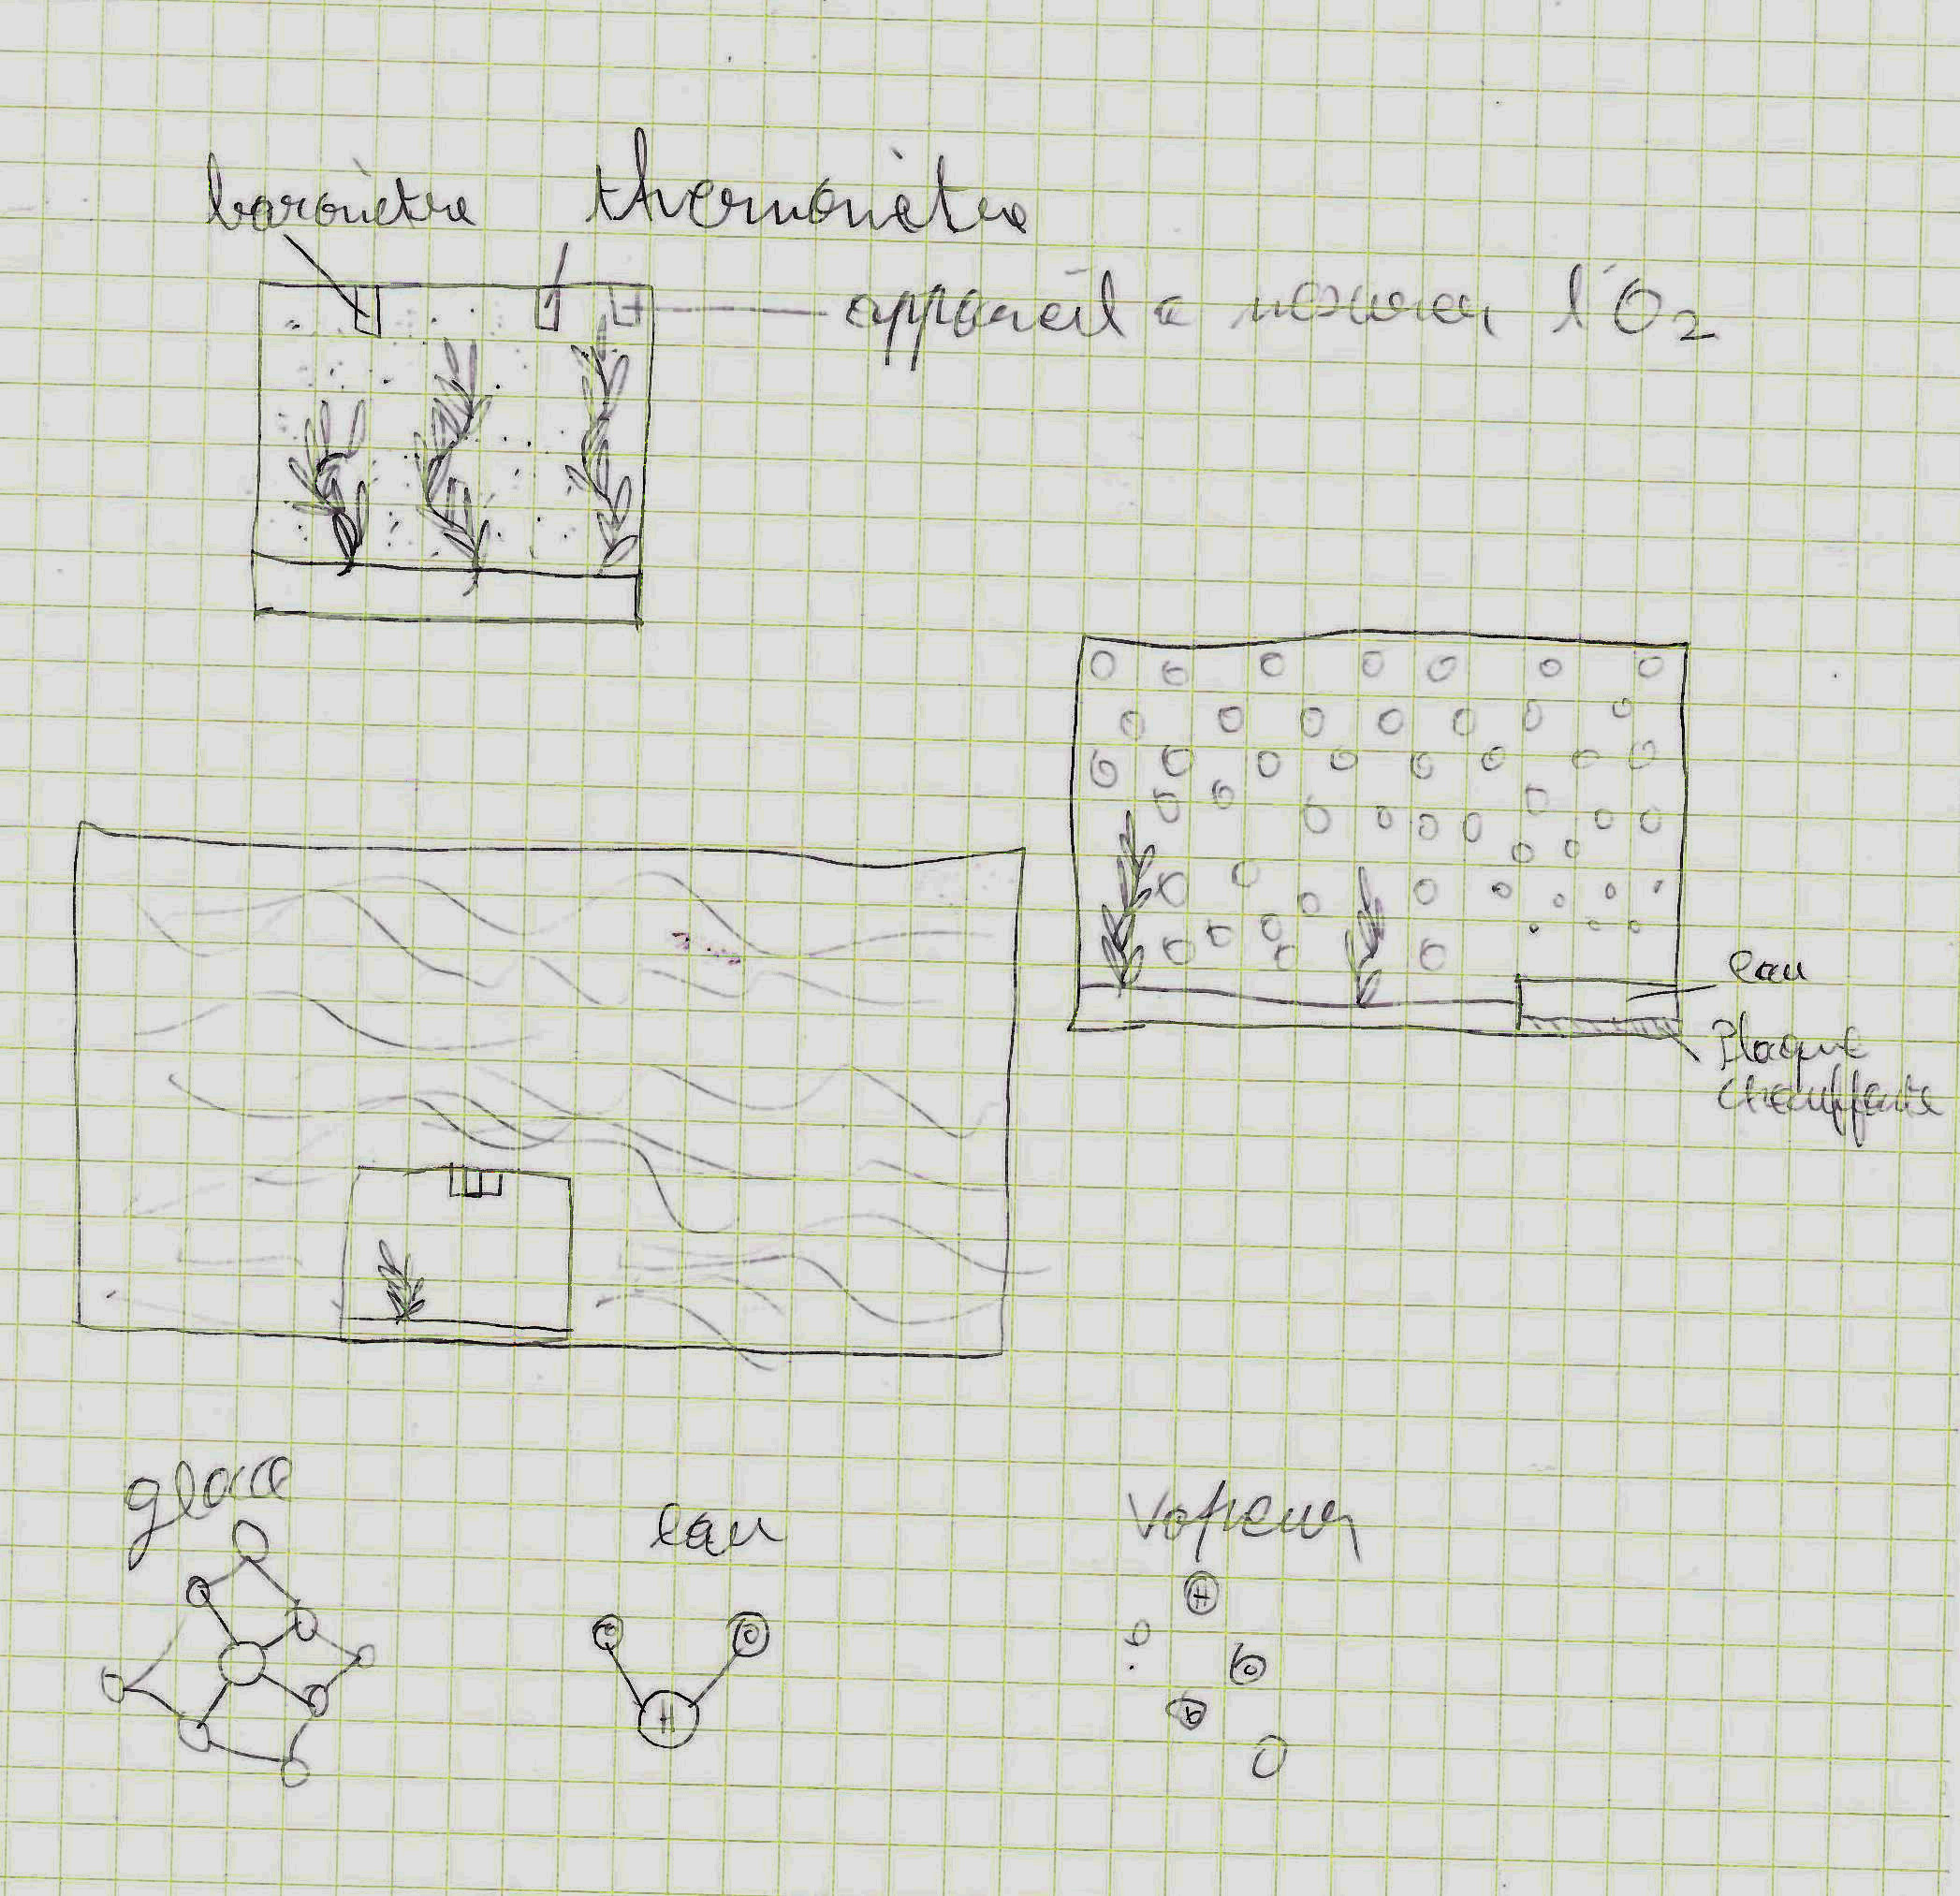 baromètre thermomètre
appareil a mesurer l'O2
eau
Plaque
chauffante
glace
eau
vapeur
H
H